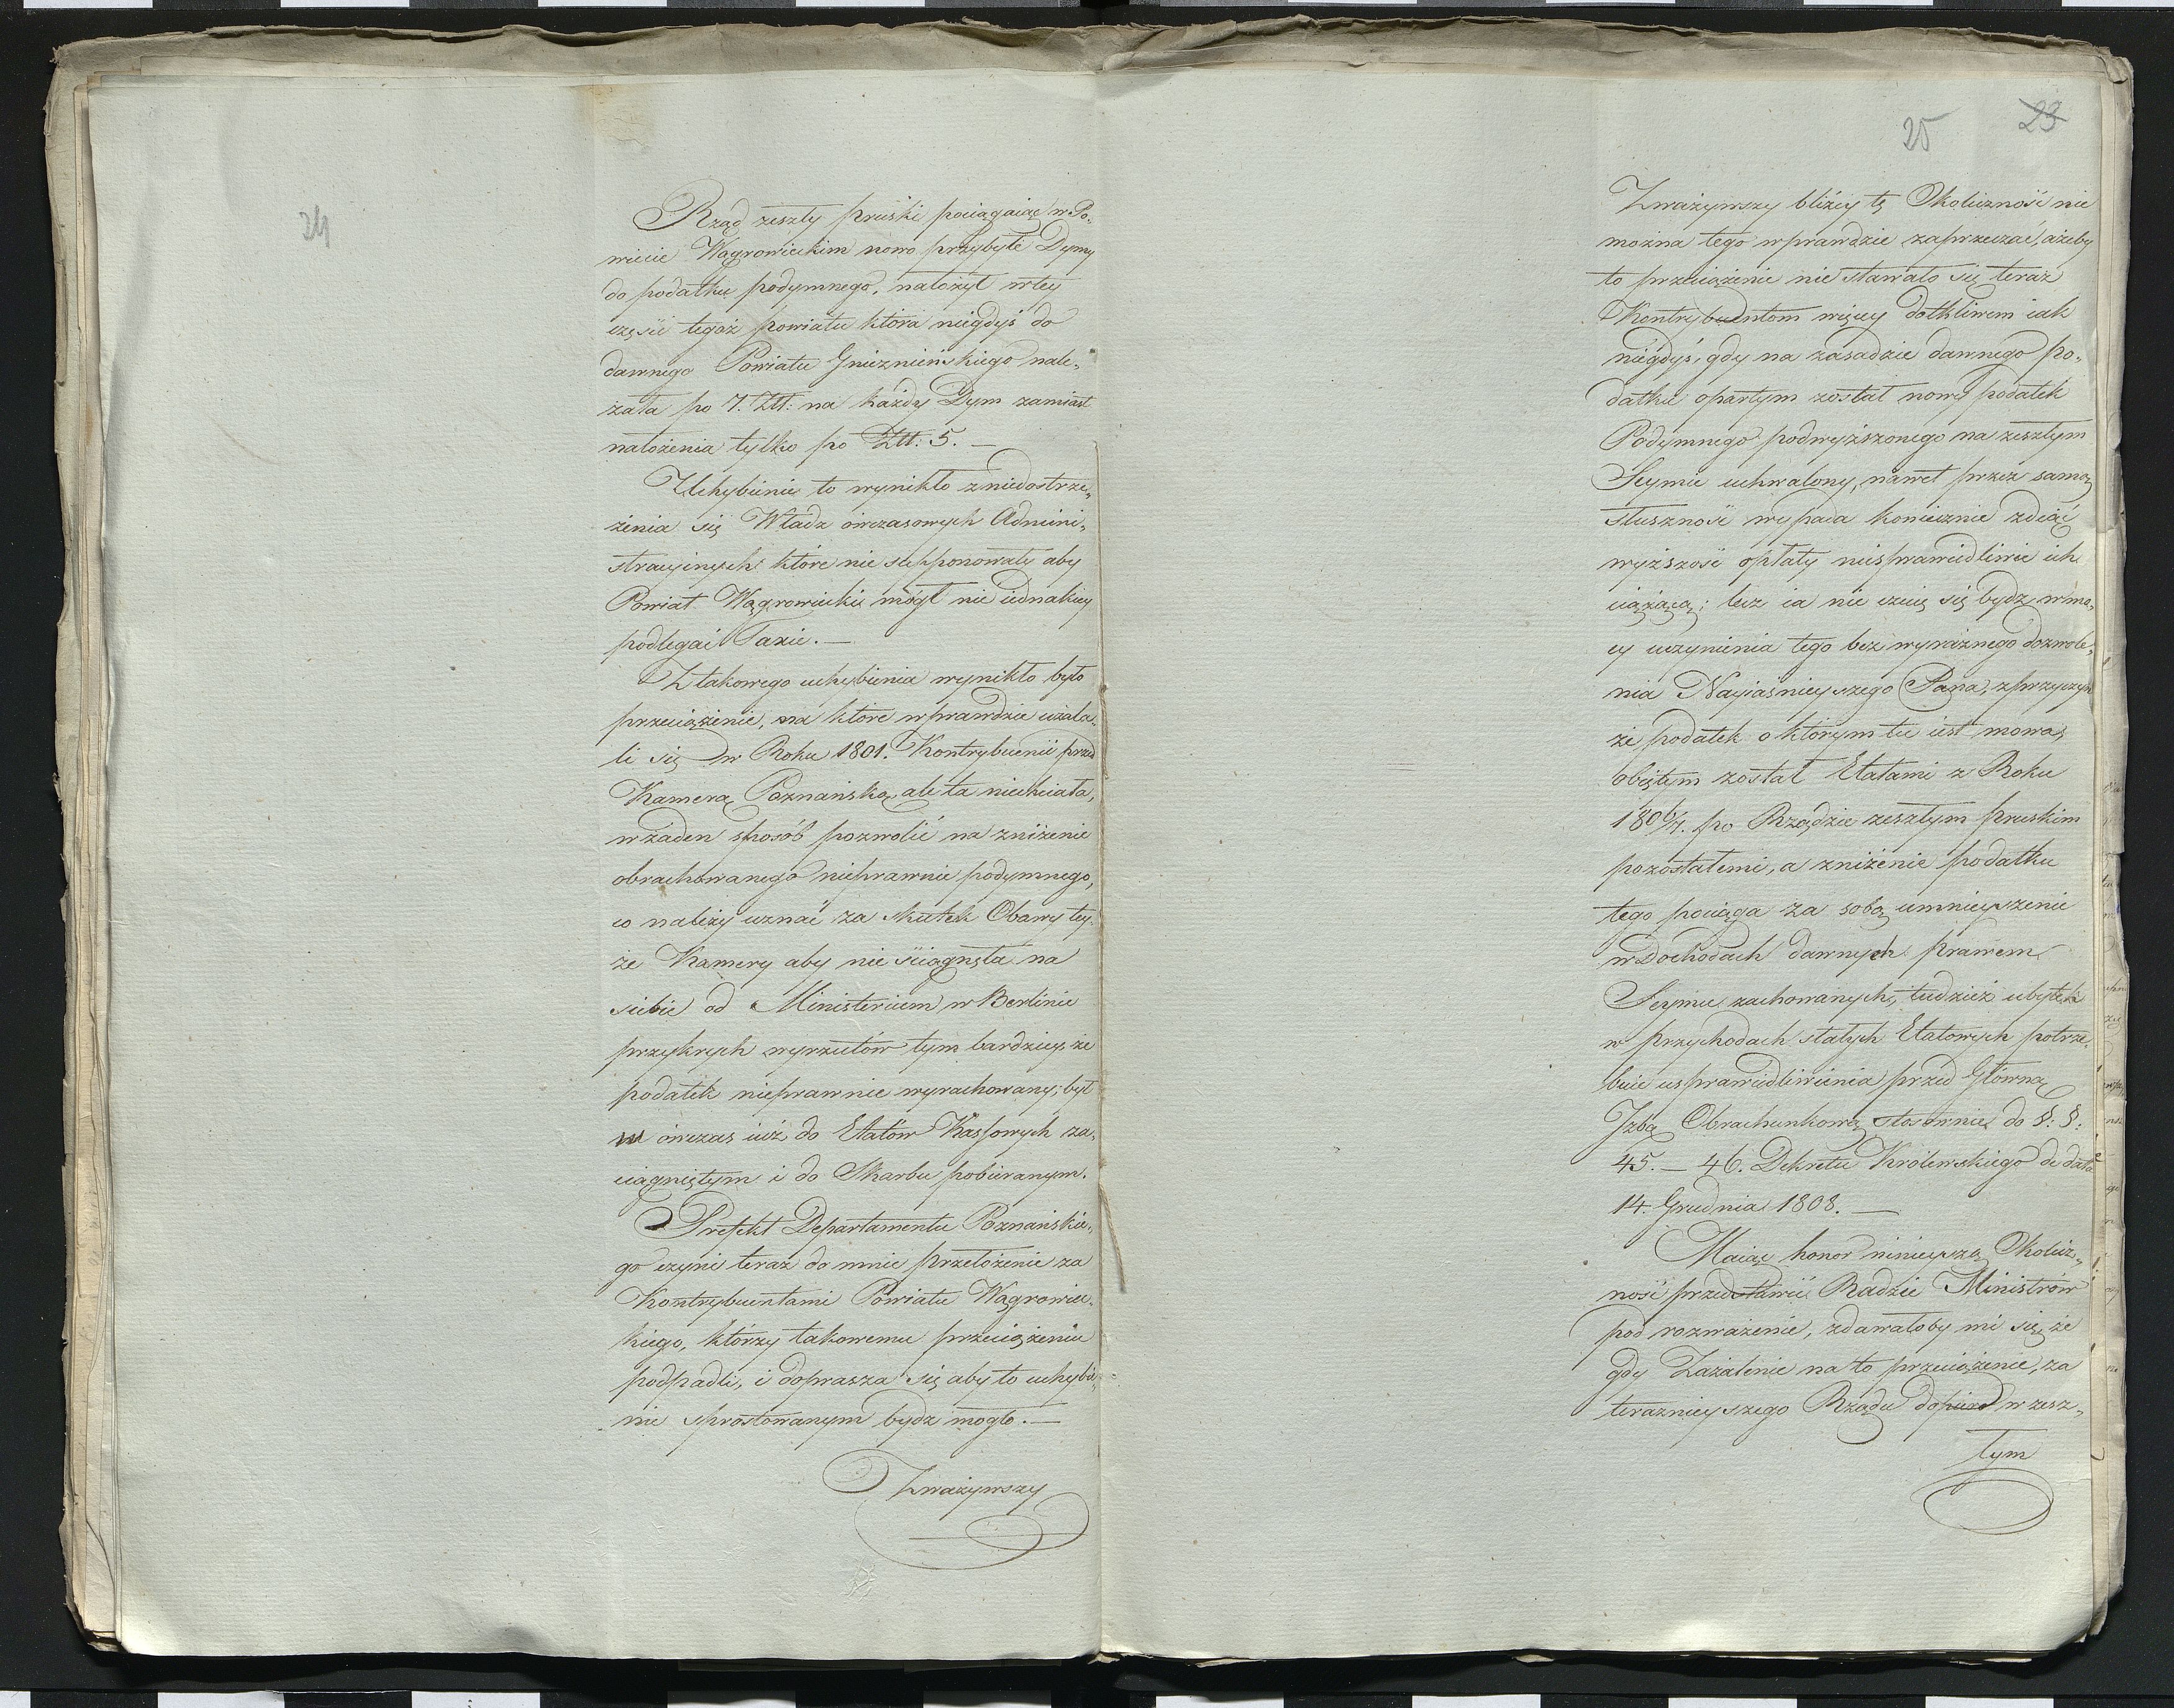 24
Rząd zeszły pruski pociągaiąc w Po„
wiecie Wągrowieckim nowo przybyłe Dymy
do podatku podymnego, nałożył w tey
części tegoż powiatu która niegdyś do
dawnego Powiatu Gnieznieńskiego nale„
żała po 7. Złł: na każdy Dym zamiast
nałożenia tylko po Złł: 5. —
Uchybienie to wynikło z niedostrze„
żenia się Władz ówczasowych Admini„
stracyinych które nie supponowały aby
Powiat Wągrowiecki mógł nie iednakiey
podlegać Taxie. —
Z takowego uchybienia wynikło było
przeciążenie, na które wprawdzie użala„
li się w Roku 1801. Kontrybuenci przed
Kamerą Poznańską, ale ta niechciała,
w żaden sposób pozwolić na zniżenie
obrachowanego nieprawnie podymnego,
co należy uznać za skutek Obawy tey„
że Kamery aby nie ściągnęła na
siebie od Ministerium w Berlinie
przykrych wyrzutów tym bardziey że
podatek nieprawnie wyrachowany; był
w ówczas iuż do Etatów Kassowych za„
ciągniętym i do Skarbu pobieranym.
Prefekt Departamentu Poznańskie„
go czyni teraz do mnie przełożenie za
Kontrybuentami Powiatu Wągrowiec„
kiego, którzy takowemu przeciążeniu
podpadli, i doprasza się aby to uchybie„
nie sprostowanym bydz mogło. —
Zważywszy
25 23
Zważywszy bliżey tę Okoliczność nie
można tego wprawdzie zaprzeczać, ażeby
to przeciążenie nie stawało się teraz
Kontrybuentom więcey dotkliwem iak
niegdyś, gdy na zasadzie dawnego po„
datku opartym został nowy podatek
Podymnego podwyższonego na zeszłym
Seymie uchwalony, nawet przez samą
słuszność wypada koniecznie zdiąć
wyższość opłaty niesprawiedliwie ich
ciążącą; lecz ia nie czuię się bydz w mo„
cy uczynienia tego bez wyraźnego dozwole„
nia Nayiaśnieyszego Pana, z przyczyn
że podatek o którym tu iest mowa,
obiętym został Etatami z Roku
180 6/7. po Rządzie zeszłym pruskim
pozostałemi, a zniżenie podatku
tego pociąga za sobą umnieyszenie
w Dochodach dawnych prawem
Seymu zachowanych, tudzież ubytek
w przychodach stałych Etatowych potrze„
buie usprawiedliwienia przed Główną
Jzbą Obrachunkową stosownie do §: §:
45. — 46. Dekretu Królewskiego de dato
14. Grudnia 1808. —
Maiąc honor ninieyszą Okolicz„
ność przedstawić Radzie Ministrów
pod rozważenie, zdawałoby mi się, że
gdy Zażalenie na to przeciążenie, za
teraznieyszego Rządu dopiero w zesz„
łym